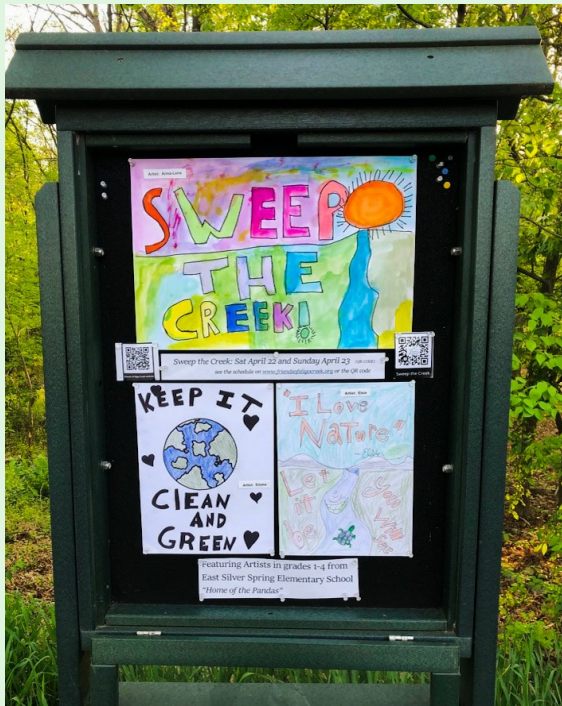 Artist: Anna-Lena
SWEEP
THE
CREEK!
Sweep the Creek: Sat April 22 and Sunday April 23
see the schedule on www.friendsofsligocreek.org or the QR code
Sweep the Creek
KEEP IT
CLEAN
AND
GREEN
"I Love
Nature"
Let
it
be
You
will
See
Featuring Artists in grades 1-4 from
East Silver Spring Elementary School
"Home of the Pandas"